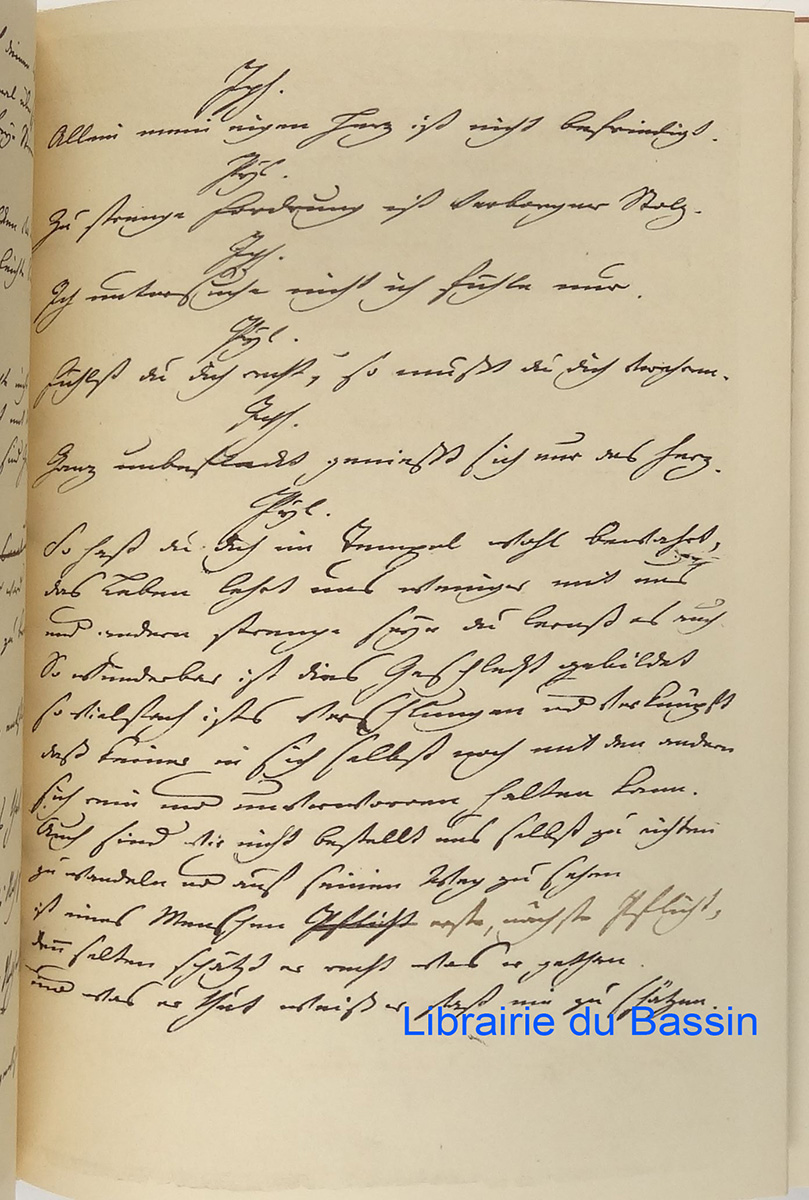 Iph.
Allein mein eigen Herz ist nicht befriedigt.
Pyl.
Zu strenge Fordrung ist verborgner Stolz.
Iph.
Ich untersuche nicht ich fühle nur.
Pyl.
Fühlst du dich recht, so mußt du dich verehren.
Iph.
Ganz unbefleckt genießt sich nur das Herz.
Pyl.
So hast du dich im Tempel wohl bewahrt,
das Leben lehrt uns weniger mit uns
und andern strenge seyn du lernst es auch
So wunderbar ist dies Geschlecht gebildet
so vielfach ists verschlungen und verknüpft
daß keiner in sich selbst noch mit den andern
sich rein und unverworren halten kann.
Auch sind wir nicht bestellt uns selbst zu richten
zu wandeln und auf seinen Weg zu sehen
ist eines Menschen Pflicht erste, nächste Pflicht,
denn selten schätzt er recht was er gethan
und was er thut weiß er fast nie zu schätzen.
Librairie du Bassin